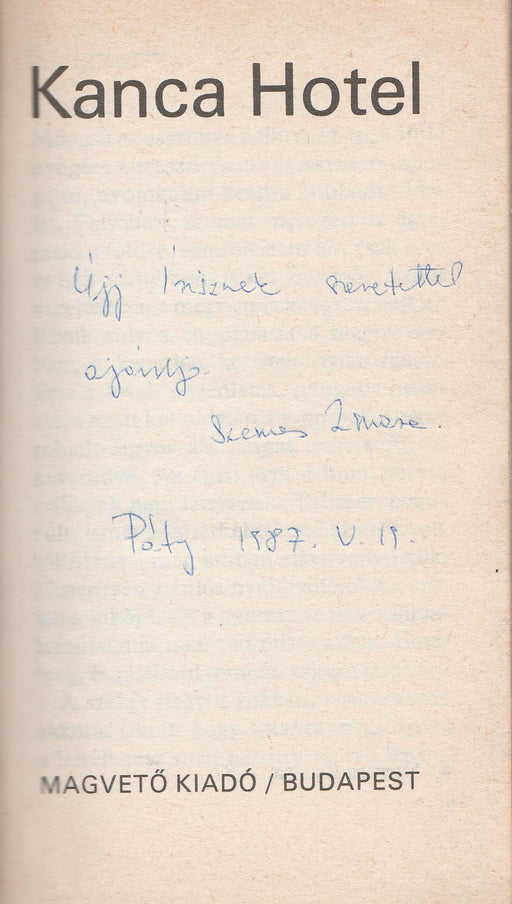 Kanca Hotel
Újj Írisznek szeretettel
ajánlja
Szemes Zsuzsa.
Páty 1987. V. 19.
MAGVETŐ KIADÓ / BUDAPEST